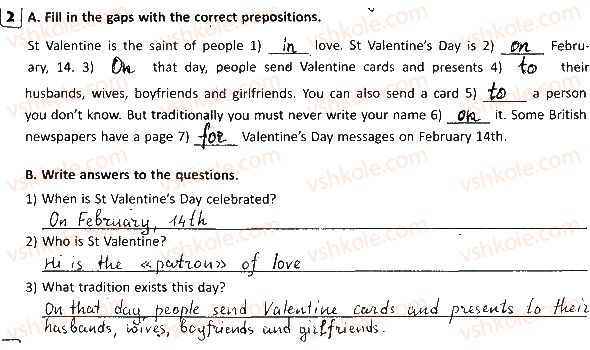 2 A. Fill in the gaps with the correct prepositions.
St Valentine is the saint of people 1) in love. St Valentine's Day is 2) on Febru-
ary, 14. 3) On that day, people send Valentine cards and presents 4) to their
husbands, wives, boyfriends and girlfriends. You can also send a card 5) to a person
you don't know. But traditionally you must never write your name 6) on it. Some British
newspapers have a page 7) for Valentine's Day messages on February 14th.
B. Write answers to the questions.
1) When is St Valentine's Day celebrated?
On February, 14th
2) Who is St Valentine?
Hi is the «patron» of love
3) What tradition exists this day?
On that day people send Valentine cards and presents to their
husbands, wives, boyfriends and girlfriends.
vshkole.com